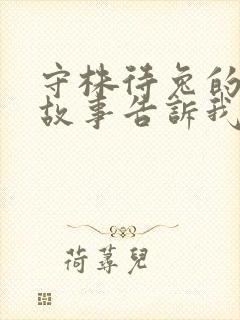 守株待兔的
故事告訴我
荷蕁兒